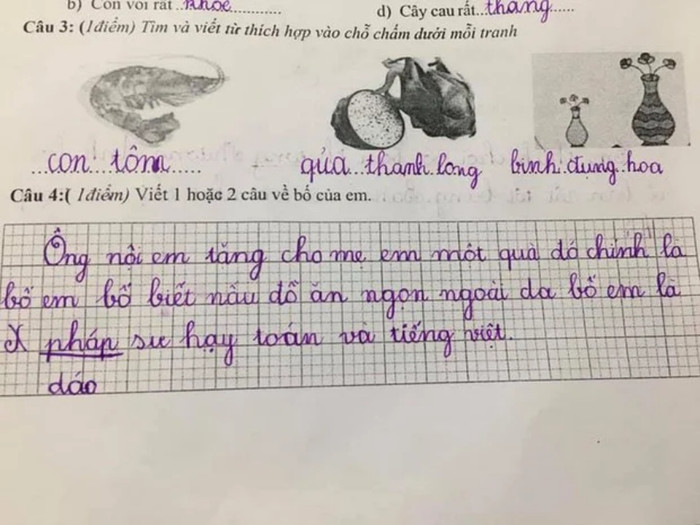 b) Con voi rất...khỏe............
d) Cây cau rất..thẳng......
Câu 3: (1điểm) Tìm và viết từ thích hợp vào chỗ chấm dưới mỗi tranh
...con...tôm.....
qủa...thanh.long
bình.đựng.hoa
Câu 4:( 1điểm) Viết 1 hoặc 2 câu về bố của em.
Ông nội em tăng cho mẹ em một quà đó chính là
bố em bố biết nâu đồ ăn ngọn ngoài da bố em là
X pháp sư hạy toán và tiếng việt.
dáo